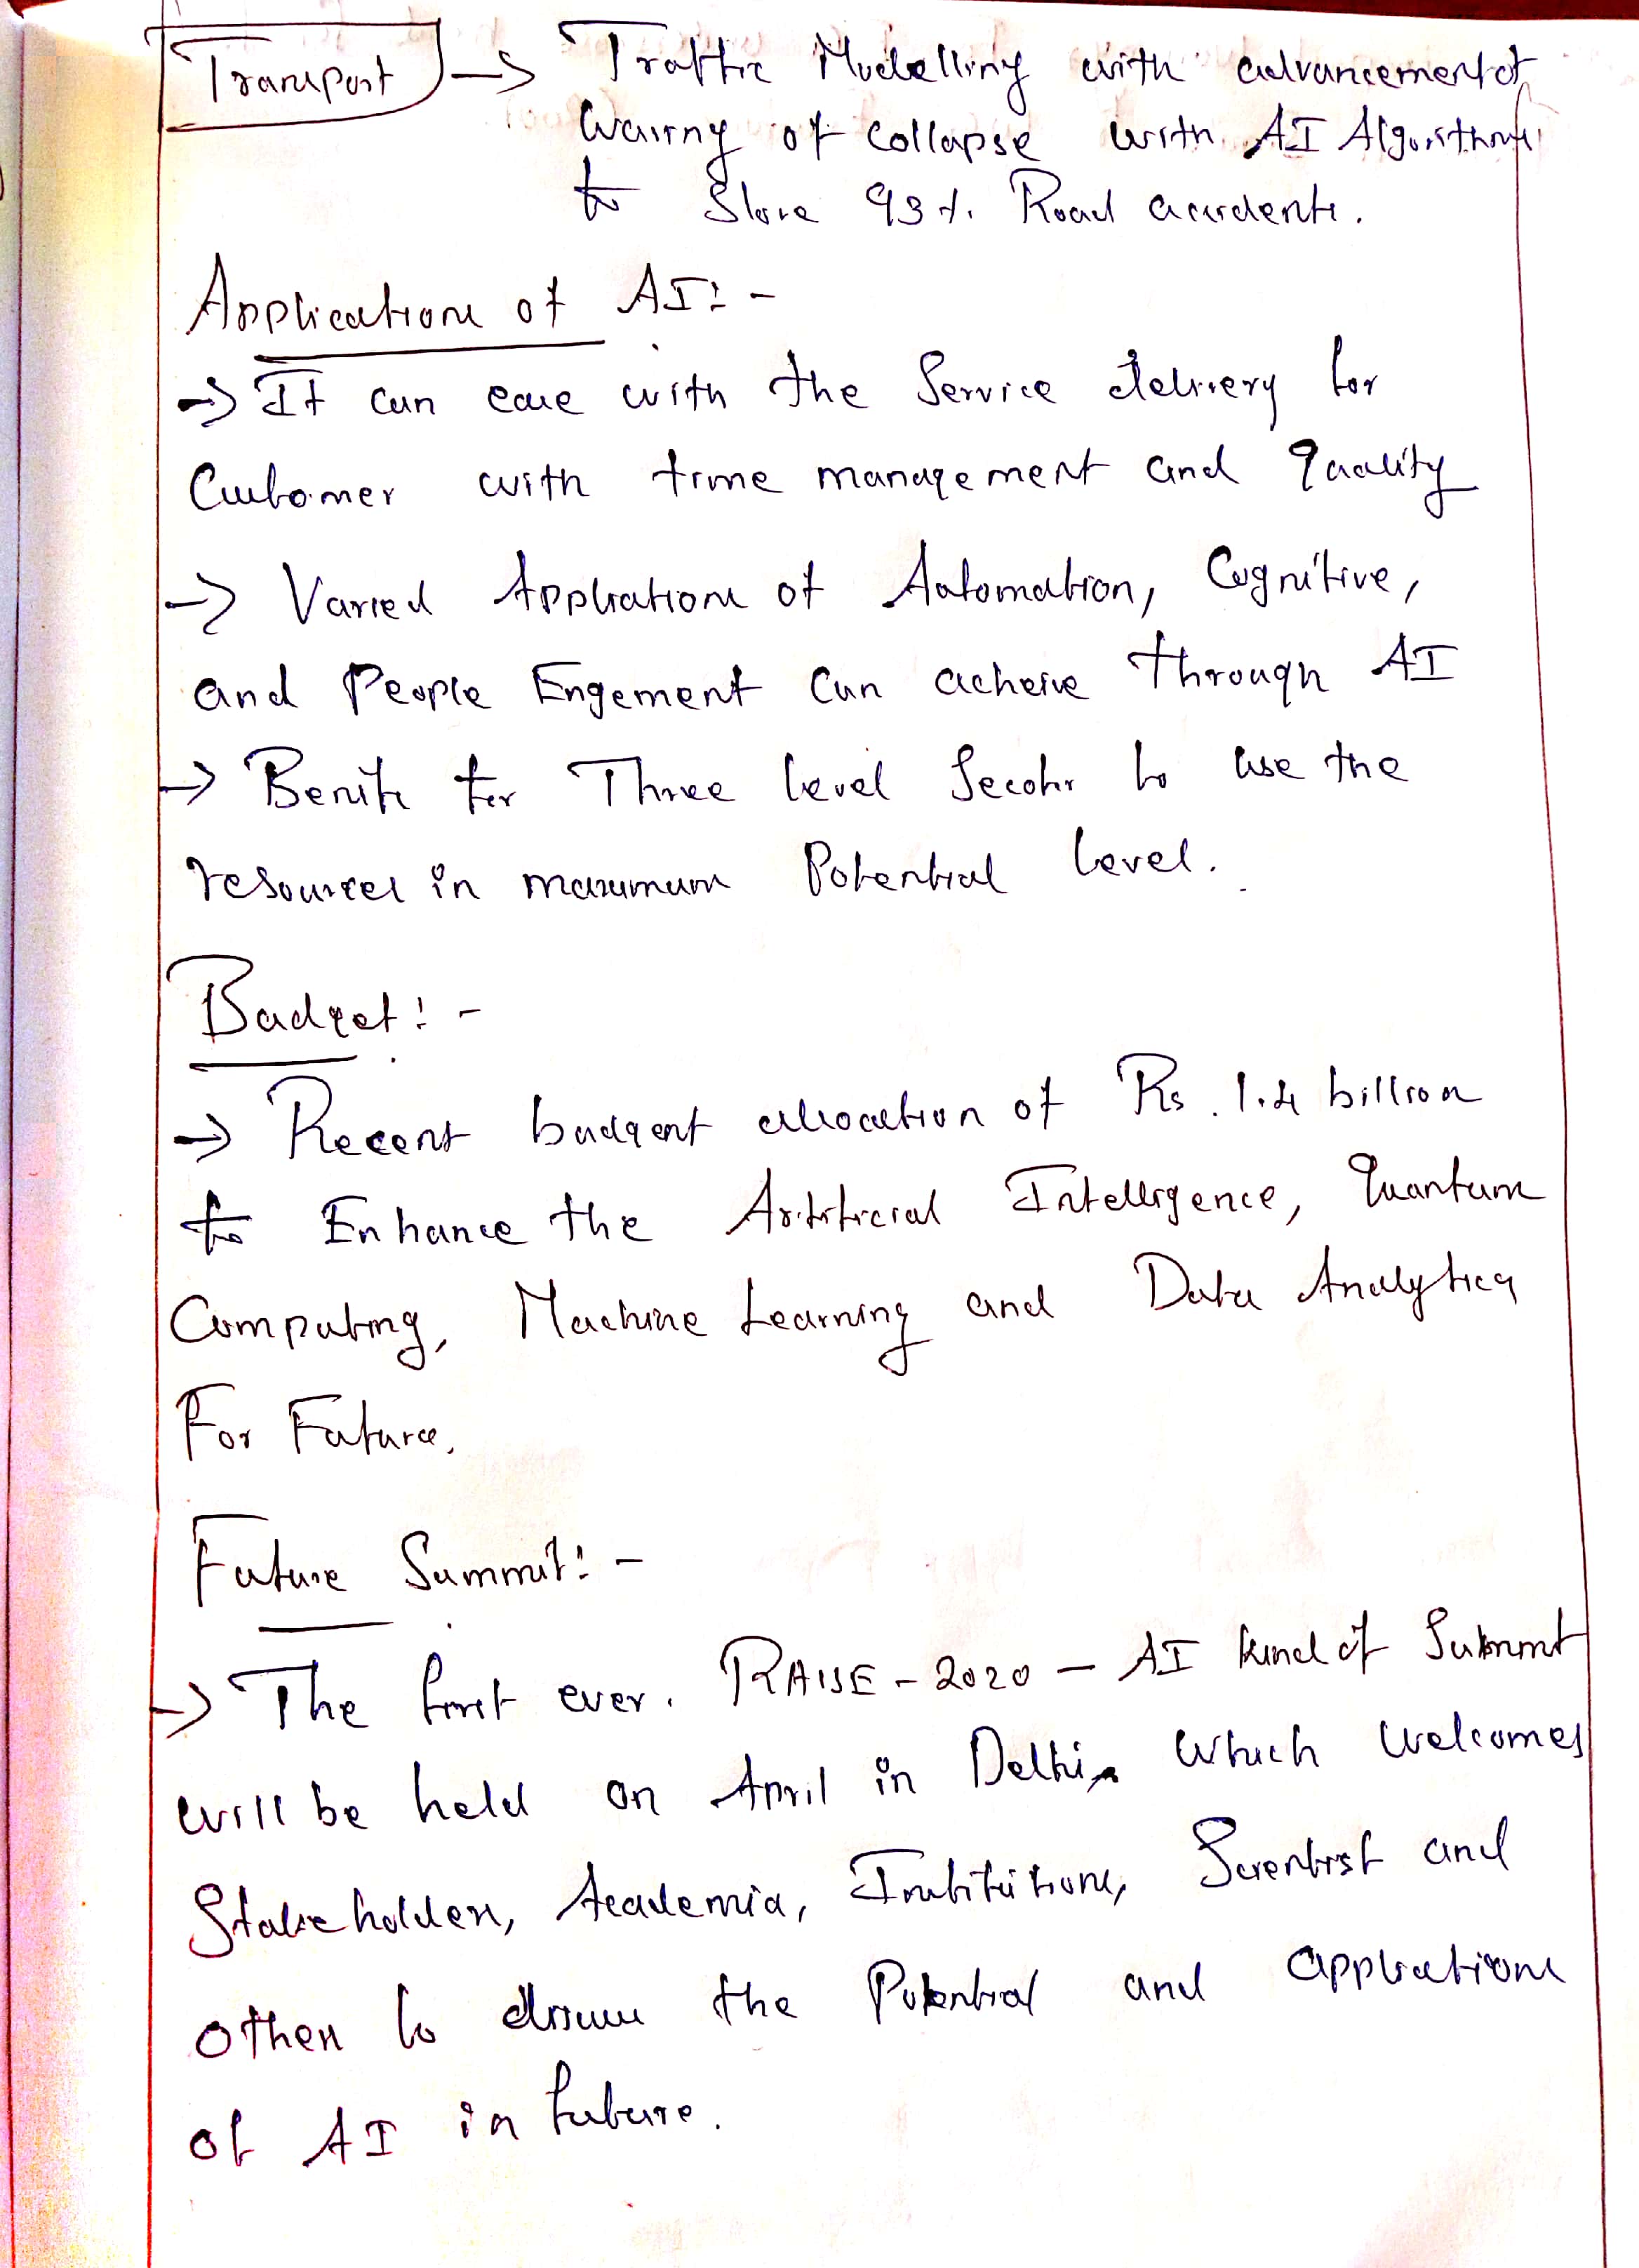 Transport → Traffic Modelling with advancement of
Warny of collapse with AI Algorithms
to Slove 93% Road accidents.
Applications of AI:-
→ It can ease with the Service delivery for
Customer with time management and quality
→ Varied Applications of Automation, Cognitive,
and People Engement Can acheive through AI
→ for Three level Sector to use the
resources in maximum Potential level.
Budget:-
→ Recent budgent allocation of Rs. 1.4 billion
to Enhance the Artificial Intelligence, Quantum
Computing, Machine Learning and Data Analytics
For Future.
Future Summit:-
→ The first ever. RAISE - 2020 - AI kind of Summit
will be held on April in Delhi which welcomes
Stakeholders, Academia, Institutions, Scientist and
others to the Potential and applications
of AI in future.